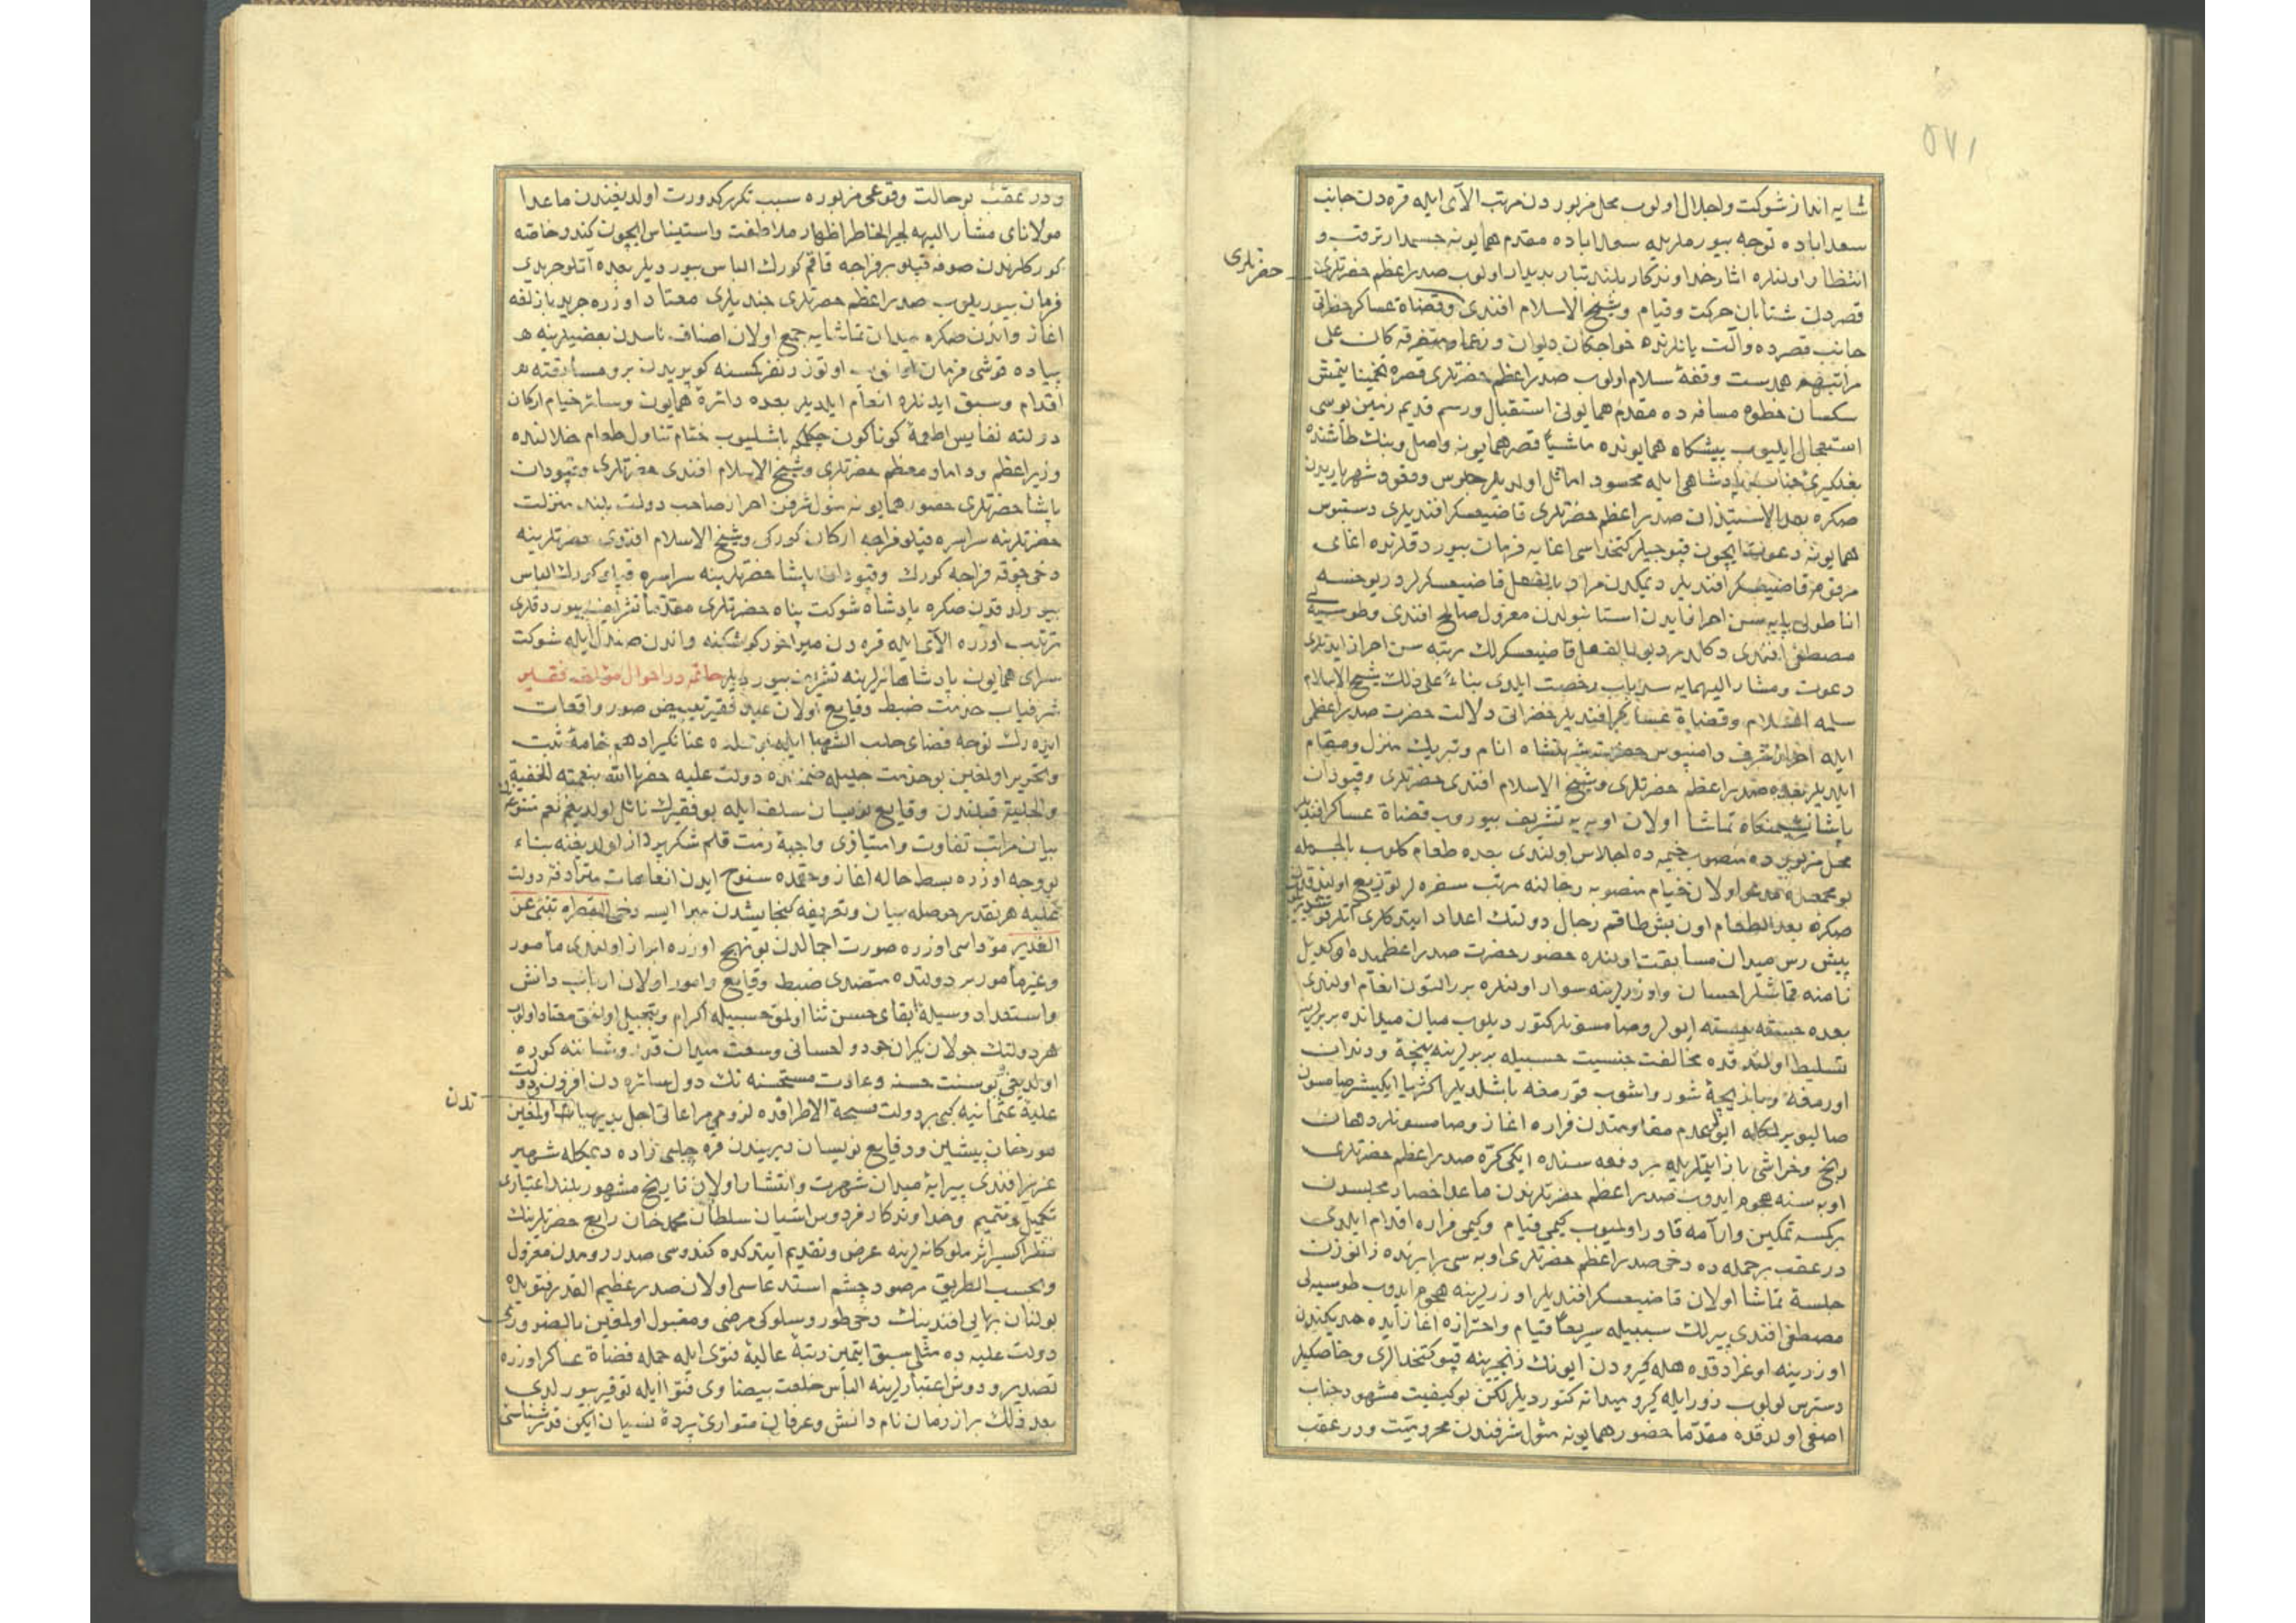 ٥٧١
شایه انداز شوكت واجلال اولوب محل مزبوردن مرتب الای ایله قره دن جانب
سعداباده توجه بیورملریله سعداباده مقدم همایونه چشمدار ترقب و
انتظار اولنلره اثار خداوندكار بلند تبار بدیدار اولوب صدراعظم حضرتلری
حضرتلری
قصردن شتابان حركت وقیام وشیخ الاسلام افندی وقضاة عساكر حضراتی
جانب قصرده والت یانلرنده خواجكان دیوان وزعما ومتفرقه كان علی
مراتبهم همدست وقفهٔ سلام اولوب صدراعظم حضرتلری قصره تخمینا یتمش
سكسان خطوه مسافه ده مقدم همایونی استقبال ورسم قدیم زمین بوسی
استعجال ایلیوب پیشكاه همایونده ماشیاً قصر همایونه واصل وبنك طاشنده
بغلكیرئ جناب پادشاهی ایله محسود اماثل اولدیلر جلوس ووقود شهریاریدن
صكره بعد الاستیذان صدراعظم حضرتلری قاضیعسكر افندیلری دستبوس
همایونه دعوت ایچون قپوجیلر كتخداسی اغایه فرمان بیوردقلرنده اغای
مرقوم قاضیعسكر افندیلر دیمكدن مراد بالفعل قاضیعسكرلردر یوخسه
اناطولی پایه سن احراز ایدن استانبولدن معزول صالح افندی وطوسیه لی
مصطفی افندی دكالدر دیو بالفعل قاضیعسكرلك رتبه سن احراز ایدنلری
دعوت ومشار الیهمایه سد باب رخصت ایلدی بناءً علی ذلك شیخ الاسلام
سلمه السلام وقضاة عساكر افندیلر حضراتی دلالت حضرت صدراعظمی
ایله احراز شرف دامنبوس حضرت شهنشاه انام وتبریك منزل ومقام
ایلدیلر بعده صدراعظم حضرتلری وشیخ الاسلام افندی حضرتلری وقپودان
پاشا نشیمنكاه تماشا اولان اوبه یه تشریف بیوروب قضاة عساكر افندیلر
محل مزبورده منصوب خیمه ده اجلاس اولندی بعده طعام كلوب بالجمله
صكره بعد الطعام اون بش طاقم رجال دولتك اعداد ایتدكلری اتلر
پیش رس میدان مسابقت اولنلره حضور حضرت صدراعظمیده اوكدیل
نامنه قماشلر احسان واوزرلرینه سوار اولنلره برر التون انعام اولندی
بعده جسته جسته ایولر وصامسونلر كتوردیلوب میان میدانده بربرینه
تسلیط اولندقده مخالفت جنسیت حسبیله بربرلرینه پنجه ودندان
اورمغه وبازیچهٔ شور واشوب قورمغه باشلدیلر اكثریا ایكیشر صامسون
صالیویرلمكله ایو عدم مقاومتدن فراره اغاز وصامسونلر دهان
رنج وخراشی باز ایتلریله بر دفعه سنده ایكی كره صدراعظم حضرتلری
اوبه سنه هجوم ایدوب صدراعظم حضرتلرندن ماعدا حضار مجلسدن
بركسه تمكین وارامه قادر اولمیوب كیمی قیام وكیمی فراره اقدام ایلدی
درعقب بر حمله ده دخی صدراعظم حضرتلری اوبه سی برابرنده زانوزن
جلسهٔ تماشا اولان قاضیعسكر افندیلر اوزرلرینه هجوم ایدوب طوسیه لی
مصطفی افندی پیرلك سببیله سریعاً قیام واحترازه اغاز ایده مدیكندن
اوزرینه اوغرادقده هله كیرودن ایونك زنجیرینه قپو كتخدالری وخاصكیلر
دسترس اولوب زور ایله كیرو میدانه كتوردیلر لكن بو كیفیت مشهود جناب
اصفی اولدقده مقدما حضور همایونه مثول شرفندن محرومیت ودرعقب
ودرعقب بو حالت وقوعی مزبوره سبب تكرر كدورت اولدیغندن ماعدا
مولانای مشار الیهه لجبر الخاطر اظهار ملاطفت واستیناس ایچون كندو خاصه
كوركلرندن صوفه قپلو بر فراجه قاقم كورك الباس بیوردیلر بعده اتلو جریدی
فرمان بیوریلوب صدراعظم حضرتلری جندیلری معتاد اوزره جرید بازلغه
اغاز واندن صكره میدان تماشایه جمع اولان اصناف ناسدن بعضیلرینه
پیاده قوشی فرمان اولنوب اوتوزر نفر كمسنه كوپریدن برو مسابقته
اقدام وسبق ایدنلره انعام ایلدیلر بعده دائرهٔ همایون وسائر خیام اركان
دولته نفایس اطعمهٔ كوناكون چكلمكه باشلیوب ختام تناول طعام خلالنده
وزیراعظم وداماد معظم حضرتلری وشیخ الاسلام افندی حضرتلری وقپودان
پاشا حضرتلری حضور همایونه مثول شرفن احراز صاحب دولت بلند منزلت
حضرتلرینه سراسره قپلو فراجه اركان كوركی وشیخ الاسلام افندی حضرتلرینه
دخی چوقه فراجه كورك وقپودان پاشا حضرتلرینه سراسره قپلو كورك الباس
بیورلدقدن صكره پادشاه شوكت پناه حضرتلری مقدما تشریف بیوردقلری
ترتیب اوزره الای ایله قره دن میراخور كوشكنه واندن صندل ایله شوكت
سرای همایون پادشاهانه لرینه تشریف بیوردیلر خاتمه در احوال مؤلف فقیر
شرفیاب خدمت ضبط وقایع اولان عبد فقیر تبییض صور واقعات
ایدرك توجه قضای حلب الشهبا ایله بو بلده عنانكیر ادهم خامهٔ ثبت
وتحریر اولمغین بو خدمت جلیله ضمننده دولت علیه حفها الله بنعمته الخفیة
والجلیة قبلندن وقایع نویسان سلف ایله بو فقیرك نائل اولدیغم نعم متنوعه نك
بیان مراتب تفاوت وامتیازی واجبهٔ ذمت قلم شكرپرداز اولدیغنه بناء
بو وجه اوزره بسط حاله اغاز وحقمده سنوح ایدن انعامات مترادفهٔ دولت
علیه هر نقدر حوصلهٔ بیان وتعریفه كنجایشدن مبرا ایسه دخی القطره تنبئ عن
الغدیر مؤداسی اوزره صورت اجمالدن بو نهج اوزره ابراز اولندی مأمور
وغیر مأمور بر دولتده متصدی ضبط وقایع وامور اولان ارباب دانش
واستعداد وسیلهٔ ابقای حسن ثنا اولمق حسبیله اكرام وتبجیل اولنمق معتاد اولوب
هر دولتك جولان یكران جود واحسانی وسعت میدان قدر وشاننه كوره
اولدیغی بو سنت حسنه وعادت مستحسنه نك دول سائره دن افزون دولت
تدن
علیهٔ عثمانیه كبی بر دولت فسیحة الاطرافده لزوم مراعاتی اجل بدیهیاتدن اولمغین
مورخان پیشین ووقایع نویسان دیریندن قره چلبی زاده دیمكله شهیر
عزیز افندی پیرایهٔ میدان شهرت وانتشار اولان تاریخ مشهور بلند اعتبارن
تكمیل وتتمیم وخداوندكار فردوس اشیان سلطان محمد خان رابع حضرتلرینك
نظر اكسیر اثر ملوكانه لرینه عرض وتقدیم ایتدكده كندوسی صدر رومدن معزول
وبحسب الطریق مرصود چشم استدعاسی اولان صدر عظیم القدر فتویده
بولنان بهایی افندینك دخی طور وسلوكی مرضی ومقبول اولمغین بالضروری
دولت علیه ده مثلی سبق ایتمین رتبهٔ عالیهٔ فتوی ایله جمله قضاة عساكر اوزره
تصدیر ودوش اعتبارلرینه الباس خلعت بیضاوی فتوا ایله توقیر بیورلدی
بعد ذلك براز زمان نام دانش وعرفان متوارئ پردهٔ نسیان ایكن قدرشناسئ